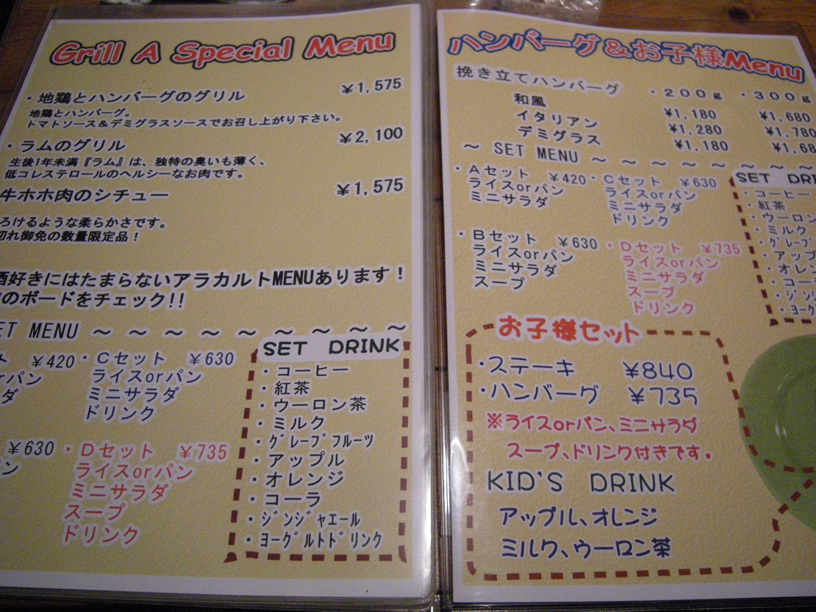 Grill A Special Menu
・地鶏とハンバーグのグリル ¥1,575
地鶏とハンバーグ。
トマトソース＆デミグラスソースでお召し上がり下さい。
・ラムのグリル ¥2,100
生後1年未満『ラム』は、独特の臭いも薄く、
低コレステロールのヘルシーなお肉です。
牛ホホ肉のシチュー ¥1,575
ろけるような柔らかさです。
切れ御免の数量限定品！
酒好きにはたまらないアラカルトMENUあります！
のボードをチェック!!
ET MENU ～ ～ ～ ～ ～ ～ ～ ～ ～
ト ¥420
パン
ダ
・Cセット ¥630
ライスorパン
ミニサラダ
ドリンク
¥630
パン
・Dセット ¥735
ライスorパン
ミニサラダ
スープ
ドリンク
SET DRINK
・コーヒー
・紅茶
・ウーロン茶
・ミルク
・グレープフルーツ
・アップル
・オレンジ
・コーラ
・ジンジャエール
・ヨーグルトドリンク
ハンバーグ＆お子様Menu
挽き立てハンバーグ ・200g ・300g
和風 ¥1,180 ¥1,680
イタリアン ¥1,280 ¥1,780
デミグラス ¥1,180 ¥1,68
～ SET MENU ～ ～ ～ ～ ～ ～ ～ ～
・Aセット ¥420
ライスorパン
ミニサラダ
・Cセット ¥630
ライスorパン
ミニサラダ
ドリンク
・Bセット ¥630
ライスorパン
ミニサラダ
スープ
・Dセット ¥735
ライスorパン
ミニサラダ
スープ
ドリンク
SET DR
・コーヒ
・紅茶
・ウーロン
・ミルク
・グレープ
・アップ
・オレン
・コーラ
・ジンジ
・ヨーグ
お子様セット
・ステーキ ¥840
・ハンバーグ ¥735
※ライスorパン、ミニサラダ
スープ、ドリンク付きです。
KID'S DRINK
アップル、オレンジ
ミルク、ウーロン茶